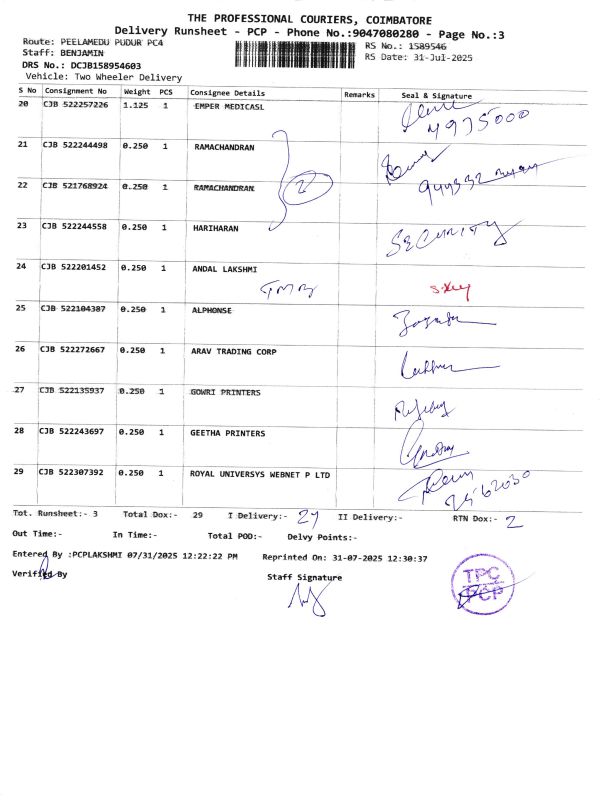 THE PROFESSIONAL COURIERS, COIMBATORE
Delivery Runsheet - PCP - Phone No.:9047080280 - Page No.:3
Route: PEELAMEDU PUDUR PC4
RS No.: 1589546
Staff: BENJAMIN
RS Date: 31-Jul-2025
DRS No.: DCJB158954603
Vehicle: Two Wheeler Delivery
S No Consignment No Weight PCS Consignee Details Remarks Seal & Signature
20 CJB 522257226 1.125 1 EMPER MEDICASL
4975000
21 CJB 522244498 0.250 1 RAMACHANDRAN
22 CJB 521768924 0.250 1 RAMACHANDRAN
2
23 CJB 522244558 0.250 1 HARIHARAN
SECURITY
24 CJB 522201452 0.250 1 ANDAL LAKSHMI
25 CJB 522104387 0.250 1 ALPHONSE
26 CJB 522272667 0.250 1 ARAV TRADING CORP
27 CJB 522135937 0.250 1 GOWRI PRINTERS
28 CJB 522243697 0.250 1 GEETHA PRINTERS
29 CJB 522307392 0.250 1 ROYAL UNIVERSYS WEBNET P LTD
Tot. Runsheet:- 3 Total Dox:- 29 I Delivery:- 27 II Delivery:- RTN Dox:- 2
Out Time:- In Time:- Total POD:- Delvy Points:-
Entered By :PCPLAKSHMI 07/31/2025 12:22:22 PM Reprinted On: 31-07-2025 12:30:37
Verified By
Staff Signature
TPC
PCP